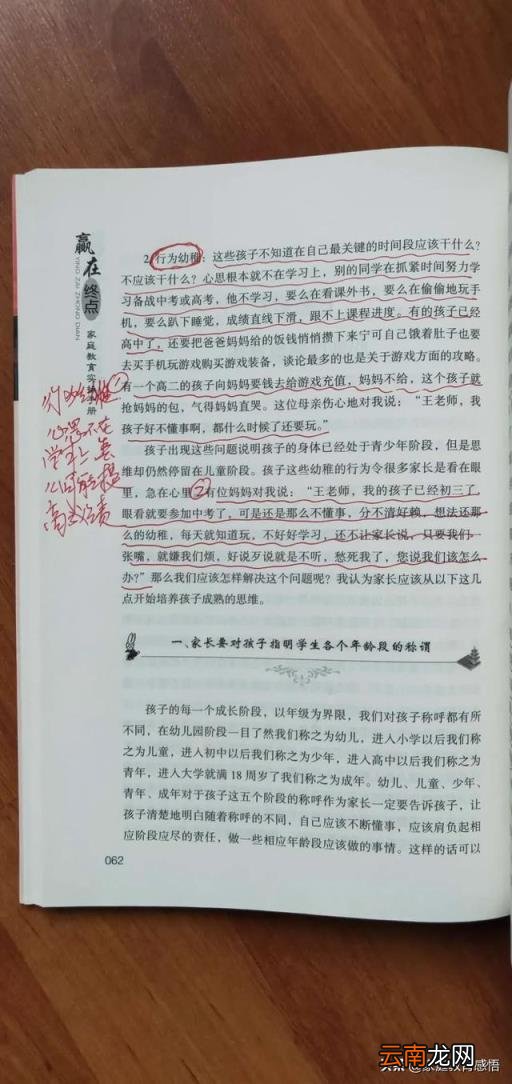 赢在终点
YING ZAI ZHONG DIAN
家庭教育实操手册
2.行为幼稚：这些孩子不知道在自己最关键的时间段应该干什么？
不应该干什么？心思根本就不在学习上，别的同学在抓紧时间努力学
习备战中考或高考，他不学习，要么在看课外书，要么在偷偷地玩手
机，要么趴下睡觉，成绩直线下滑，跟不上课程进度。有的孩子已经
高中了，还要把爸爸妈妈给的饭钱悄悄攒下来宁可自己饿着肚子也要
去买手机玩游戏购买游戏装备，谈论最多的也是关于游戏方面的攻略。
有一个高二的孩子向妈妈要钱去给游戏充值，妈妈不给，这个孩子就
抢妈妈的包，气得妈妈直哭。这位母亲伤心地对我说：“王老师，我
孩子好不懂事啊，都什么时候了还要玩。”
孩子出现这些问题说明孩子的身体已经处于青少年阶段，但是思
维却仍然停留在儿童阶段。孩子这些幼稚的行为令很多家长是看在眼
里，急在心里②有位妈妈对我说：“王老师，我的孩子已经初三了，
眼看就要参加中考了，可是还是那么不懂事，分不清好赖，想法还那
么的幼稚，每天就知道玩，不好好学习，还不让家长说，只要我们一
张嘴，就嫌我们烦，好说歹说就是不听，愁死我了，您说我们该怎么
办？”那么我们应该怎样解决这个问题呢？我认为家长应该从以下这几
点开始培养孩子成熟的思维。
一、家长要对孩子指明学生各个年龄段的称谓
孩子的每一个成长阶段，以年级为界限，我们对孩子称呼都有所
不同，在幼儿园阶段一目了然我们称之为幼儿，进入小学以后我们称
之为儿童，进入初中以后我们称之为少年，进入高中以后我们称之为
青年，进入大学就满 18 周岁了我们称之为成年。幼儿、儿童、少年、
青年、成年对于孩子这五个阶段的称呼作为家长一定要告诉孩子，让
孩子清楚地明白随着称呼的不同，自己应该不断懂事，应该肩负起相
应阶段应尽的责任，做一些相应年龄段应该做的事情。这样的话可以
062
行为幼稚
心思不在
学习上
云南龙网
头条 @家庭教育感悟